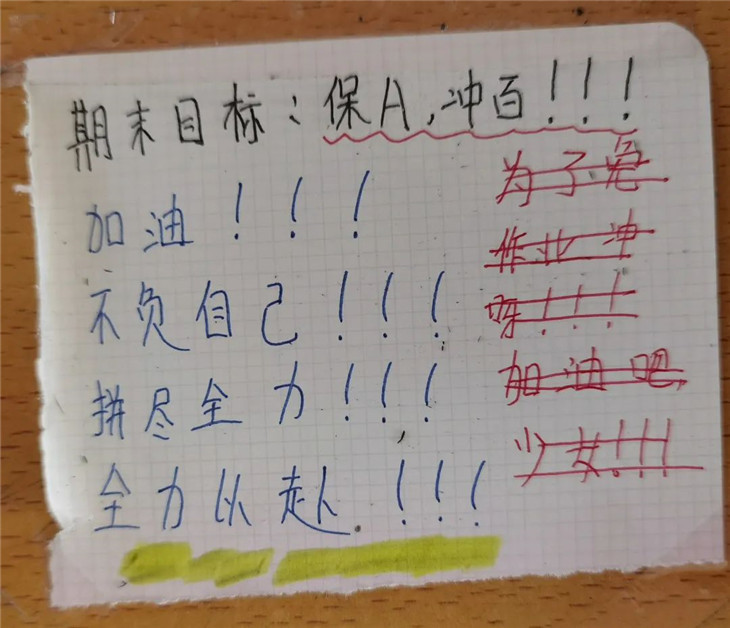 期末目标：保A,冲百！！！
加油！！！
不负自己！！！
拼尽全力！！！
全力以赴！！！
为了免
作业冲
呀！！！
加油吧,
少女！！！